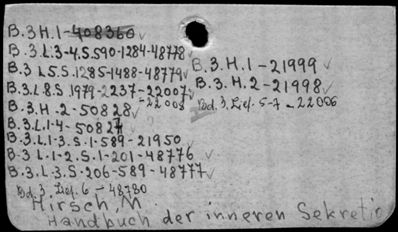 B.3H.1-408360
B.3.L.3-4.S.590-1284-48778
B.3 L5.S.1285-1488-48779
B.3.L.8.S.1979-2237-22007
-22008
B.3.H.2-50828
B.3.L.1-4-50827
B.3.L.1-3.S.1-589-21950
B.3 L.1-2.S.1-201-48776
B.3.L.3-S.206-589-48777
Bd.3. Lief. 6-48780
B.3.H.1-21999
B.3.H.2-21998
Bd.3. Lief. 5-7-22006
Hirsch, M.
Handbuch der inneren Sekretio